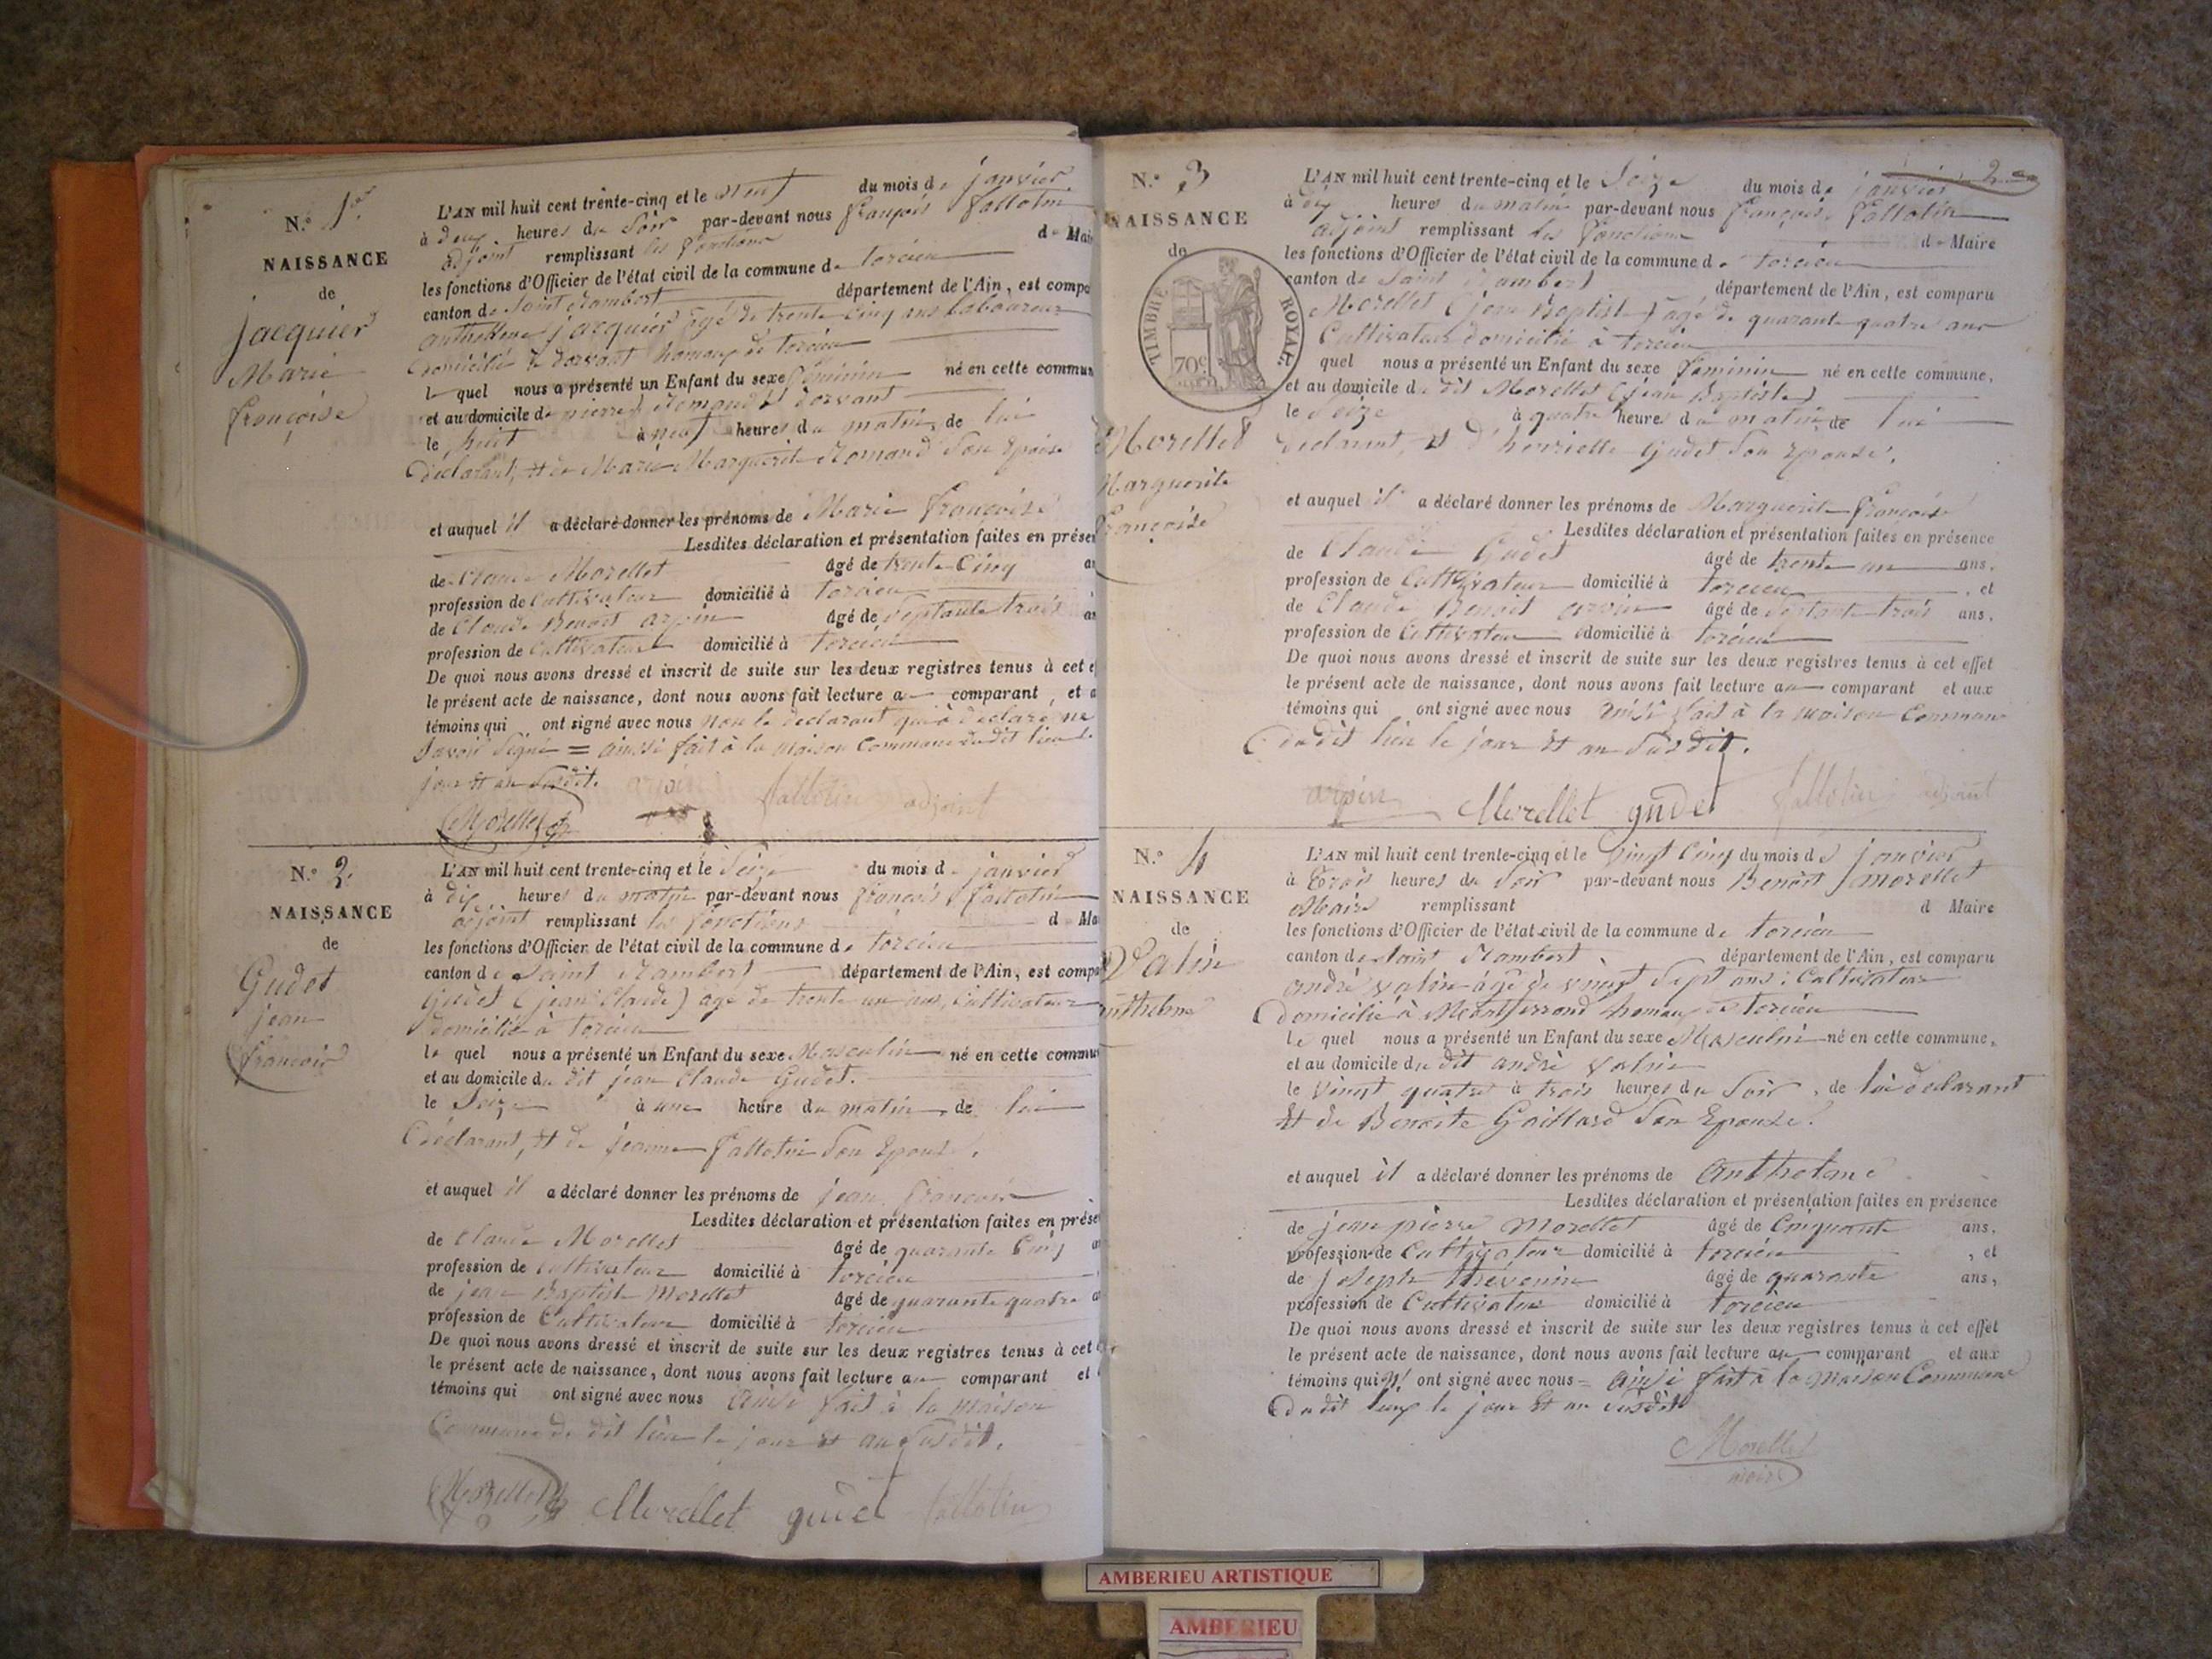 N.º 1er
NAISSANCE
de
jacquier
Marie
françoise
L'AN mil huit cent trente-cinq et le neuf du mois de janvier
à deux heures du Soir par-devant nous françois fallotin
adjoint remplissant les fonctions de Mair
les fonctions d'Officier de l'état civil de la commune de torcieu
canton de Saint Rambert département de l'Ain, est compa
anthelme jacquier âgé de trente cinq ans laboureur
domicilié à dorvant hameau de torcieu
le quel nous a présenté un Enfant du sexe féminin né en cette commun
et au domicile de pierre Romand à dorvant
le huit à neuf heures du matin, de lui
déclarant, et de Marie Marguerite Romand Son Epouse
et auquel il a déclaré donner les prénoms de Marie françoise
Lesdites déclaration et présentation faites en présen
de Claude Morellet âgé de trente Cinq an
profession de Cultivateur domicilié à torcieu
de Claude Benoit arpin âgé de Septante trois an
profession de Cultivateur domicilié à torcieu
De quoi nous avons dressé et inscrit de suite sur les deux registres tenus à cet e
le présent acte de naissance, dont nous avons fait lecture au comparant, et a
témoins qui ont signé avec nous non le declarant qui a déclaré ne
Savoir Signé = ainsi fait à la maison Commune du dit lieu le
jour et an Susdit. arpin fallotin adjoint
Morellet
N.º 2.
NAISSANCE
de
Gudet
jean
françois
L'AN mil huit cent trente-cinq et le Seize du mois de janvier
à dix heures du matin par-devant nous françois fallotin
adjoint remplissant les fonctions de Ma
les fonctions d'Officier de l'état civil de la commune de torcieu
canton de Saint Rambert département de l'Ain, est compa
Gudet (jean Claude) âgé de trente un ans, Cultivateur
domicilié à torcieu
le quel nous a présenté un Enfant du sexe Masculin né en cette commun
et au domicile du dit jean Claude Gudet.
le Seize à une heure du matin, de lui
déclarant, et de jeanne fallotin Son Epouse.
et auquel il a déclaré donner les prénoms de jean françois
Lesdites déclaration et présentation faites en prése
de Claude Morellet âgé de quarante Cinq a
profession de Cultivateur domicilié à torcieu
de jean Baptiste Morellet âgé de quarante quatre a
profession de Cultivateur domicilié à torcieu
De quoi nous avons dressé et inscrit de suite sur les deux registres tenus à cet
le présent acte de naissance, dont nous avons fait lecture au comparant et
témoins qui ont signé avec nous ainsi fait à la maison
Commune du dit lieu le jour et an Susdit.
Morellet Morellet gudet fallotin
2
N.º 3
NAISSANCE
de
TIMBRE ROYAL
70c
Morellet
Marguerite
françoise
L'AN mil huit cent trente-cinq et le Seize du mois de janvier
à dix heures du matin par-devant nous françois fallotin
adjoint remplissant les fonctions de Maire
les fonctions d'Officier de l'état civil de la commune de torcieu
canton de Saint Rambert département de l'Ain, est comparu
Morellet (jean Baptiste) âgé de quarante quatre ans
Cultivateur domicilié à torcieu
quel nous a présenté un Enfant du sexe féminin né en cette commune,
et au domicile du dit Morellet (jean Baptiste)
le Seize à quatre heures du matin de lui
déclarant, et d'henriette Gudet Son Epouse.
et auquel il a déclaré donner les prénoms de Marguerite françoise
Lesdites déclaration et présentation faites en présence
de Claude Gudet âgé de trente un ans,
profession de Cultivateur domicilié à torcieu, et
de Claude Benoit arpin âgé de Septante trois ans,
profession de Cultivateur domicilié à torcieu
De quoi nous avons dressé et inscrit de suite sur les deux registres tenus à cet effet
le présent acte de naissance, dont nous avons fait lecture au comparant et aux
témoins qui ont signé avec nous ainsi fait à la maison Commune
du dit lieu le jour et an Susdit.
arpin Morellet gudet fallotin adjoint
N.º 4
NAISSANCE
de
Valin
anthelme
L'AN mil huit cent trente-cinq et le vingt Cinq du mois de janvier
à trois heures du Soir par-devant nous Benoit Morellet
Maire remplissant d Maire
les fonctions d'Officier de l'état civil de la commune de torcieu
canton de Saint Rambert département de l'Ain, est comparu
andré valin âgé de vingt Sept ans, Cultivateur
domicilié à Montferrand hameau de torcieu
le quel nous a présenté un Enfant du sexe Masculin né en cette commune,
et au domicile du dit andré valin
le vingt quatre à trois heures du Soir, de lui declarant
et de Benoite Gaillard Son Epouse.
et auquel il a déclaré donner les prénoms de Anthelme
Lesdites déclaration et présentation faites en présence
de jean pierre Morellet âgé de Cinquante ans,
profession de Cultivateur domicilié à torcieu, et
de joseph thévenin âgé de quarante ans,
profession de Cultivateur domicilié à torcieu
De quoi nous avons dressé et inscrit de suite sur les deux registres tenus à cet effet
le présent acte de naissance, dont nous avons fait lecture au comparant et aux
témoins qui ont signé avec nous = ainsi fait à la maison Commune
du dit lieux le jour et an Susdit
Morellet
maire
AMBERIEU ARTISTIQUE
AMBERIEU